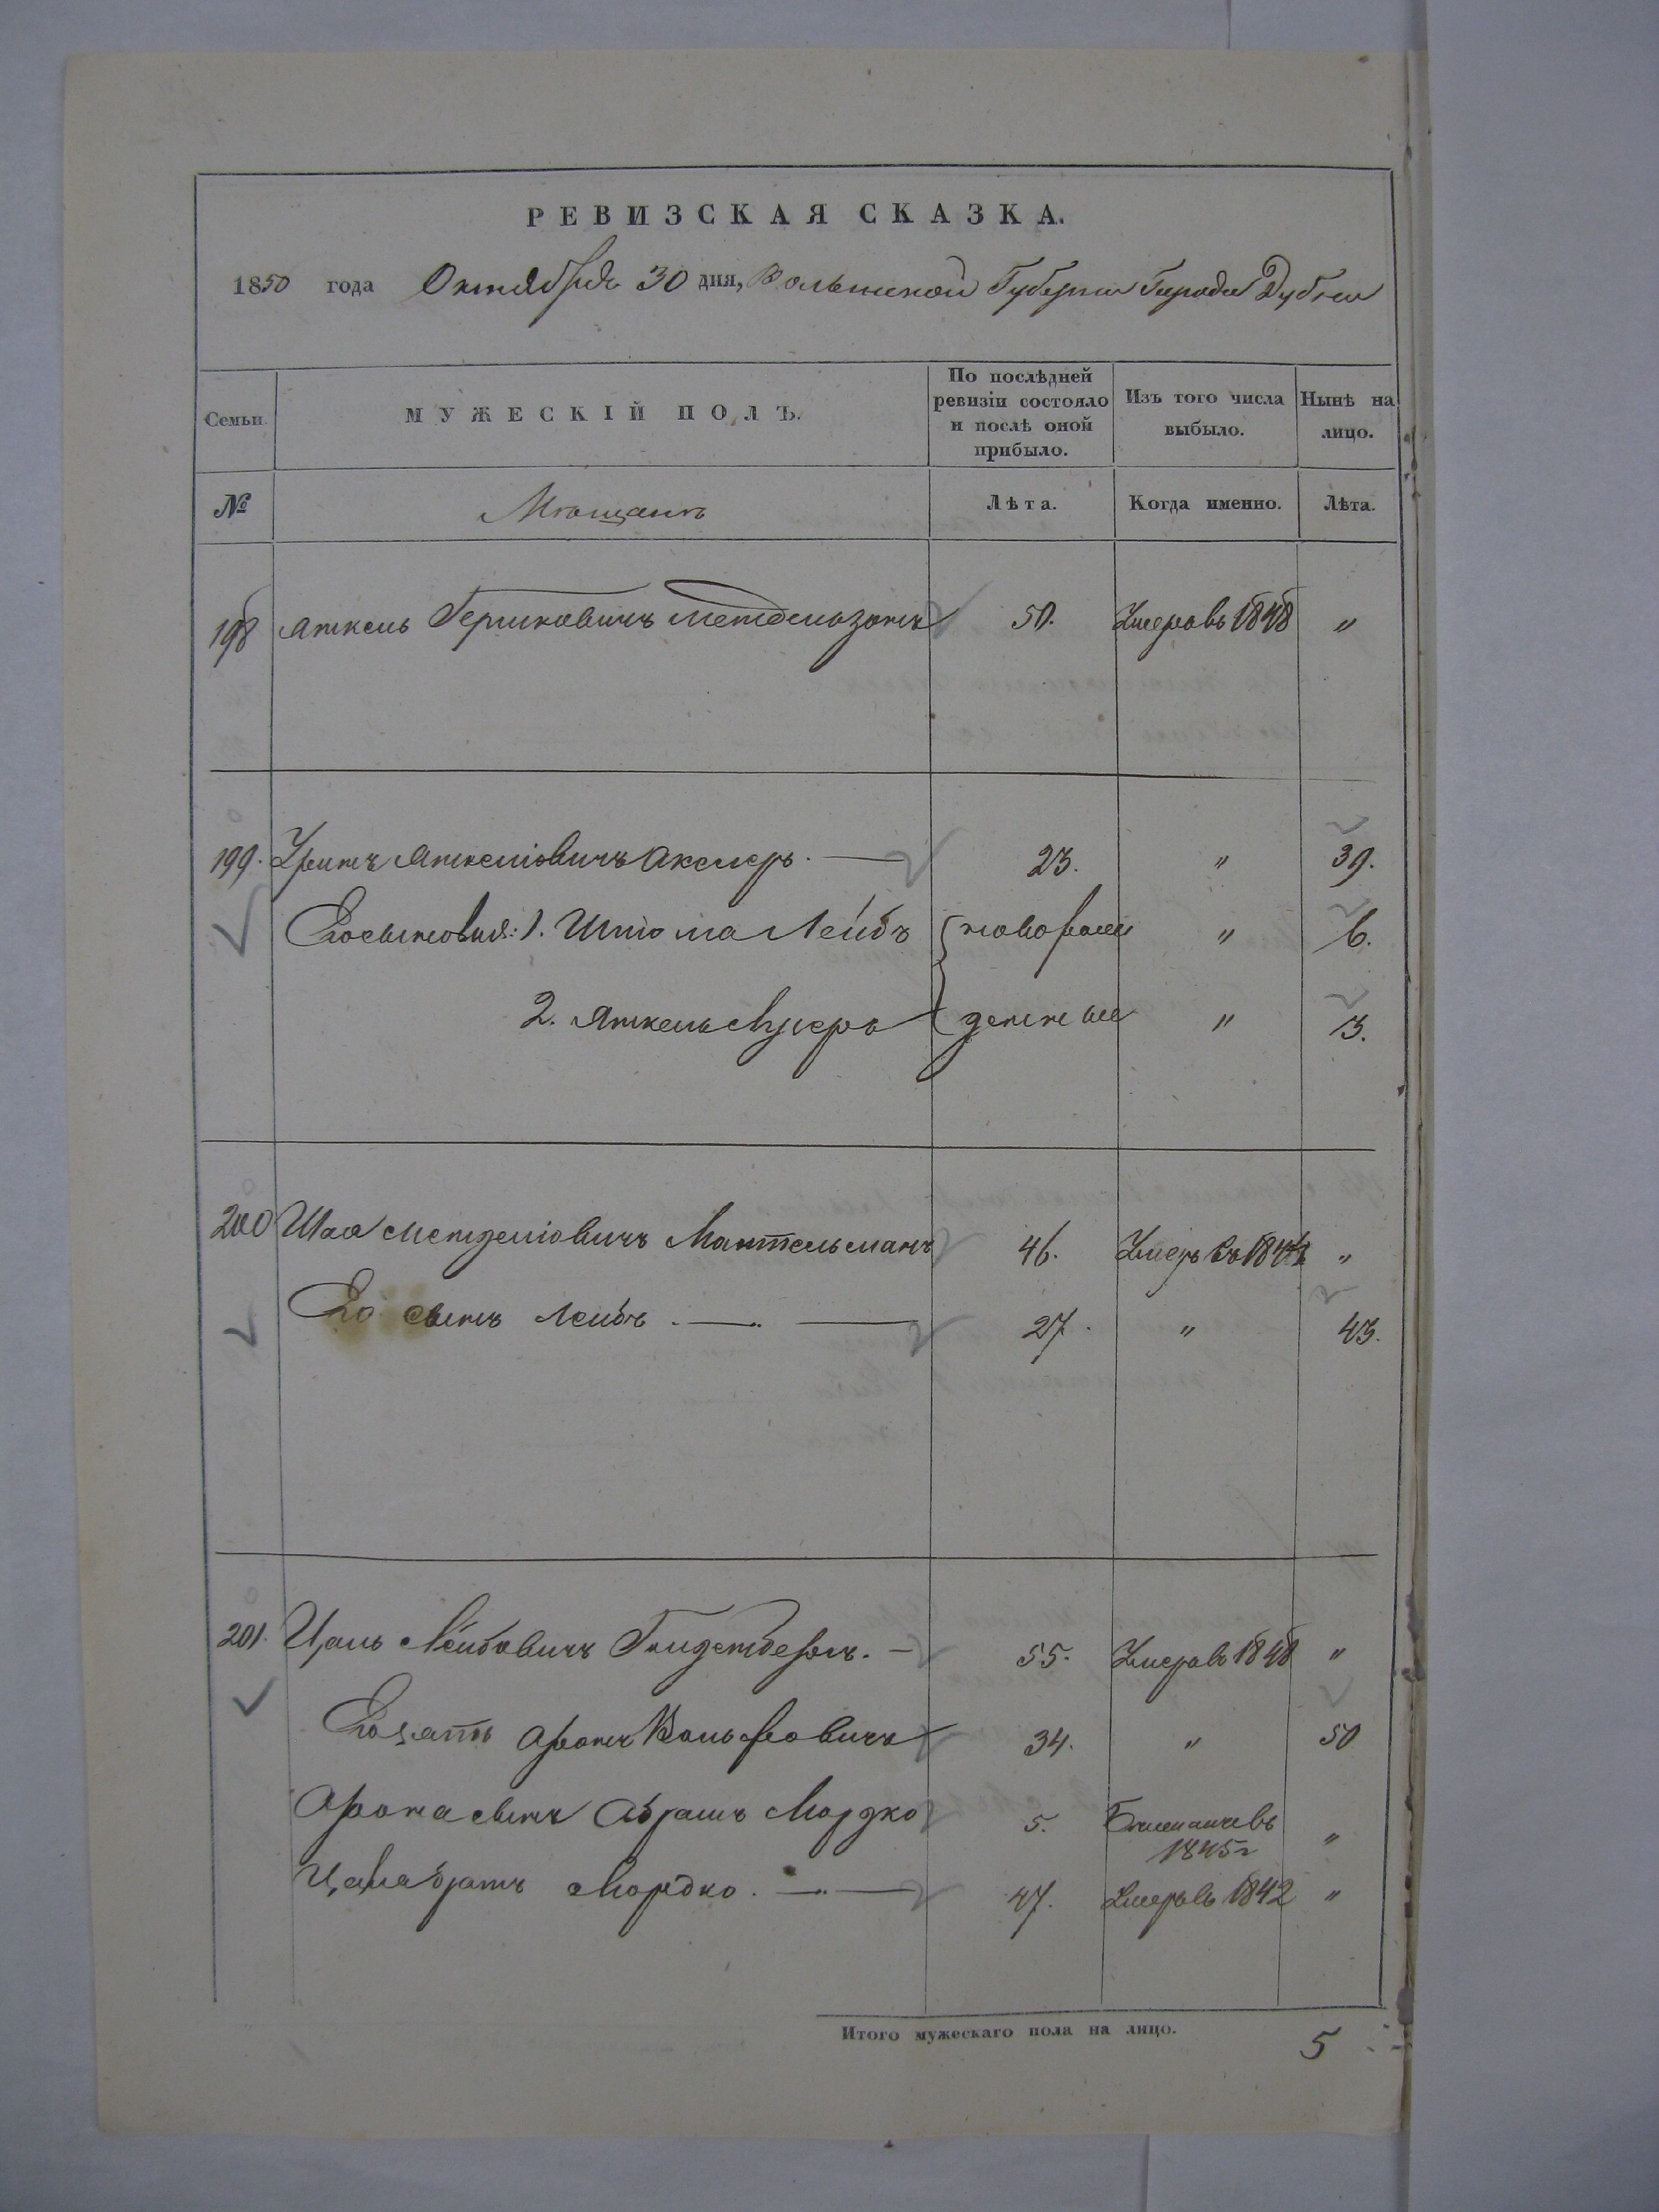 РЕВИЗСКАЯ СКАЗКА.
1850 года Октября 30 дня, Волынской Губернии Города Дубна
Семьи.
МУЖЕСКІЙ ПОЛЪ.
По послѣдней ревизіи состояло и послѣ оной прибыло.
Изъ того числа выбыло.
Нынѣ на лицо.
№
Мѣщанъ
Лѣта.
Когда именно.
Лѣта.
198 Янкель Гершковичъ Мендельзонъ 50. Умеръ въ 1848 "
199. Янкеліовичъ Акслеръ. — 23. " 39.
Его сыновья: 1. Шліома Лейбъ { новорож " 6.
2. Янкель Мееръ { денные " 3.
200 Шая Менделіовичъ Мантельманъ 46. Умеръ въ "
Его сынъ Лейбъ. — — 27. " 43.
201. Цаль Лейбовичъ Голденберъ. — 55. Умеръ въ 1848 "
Его зять Аронъ Вольфовичъ 34. " 50
Арона сынъ Абрамъ Мордко 5. 1845г "
Цаля братъ Мордко. — — 47. Умеръ въ 1842 "
Итого мужескаго пола на лицо. 5